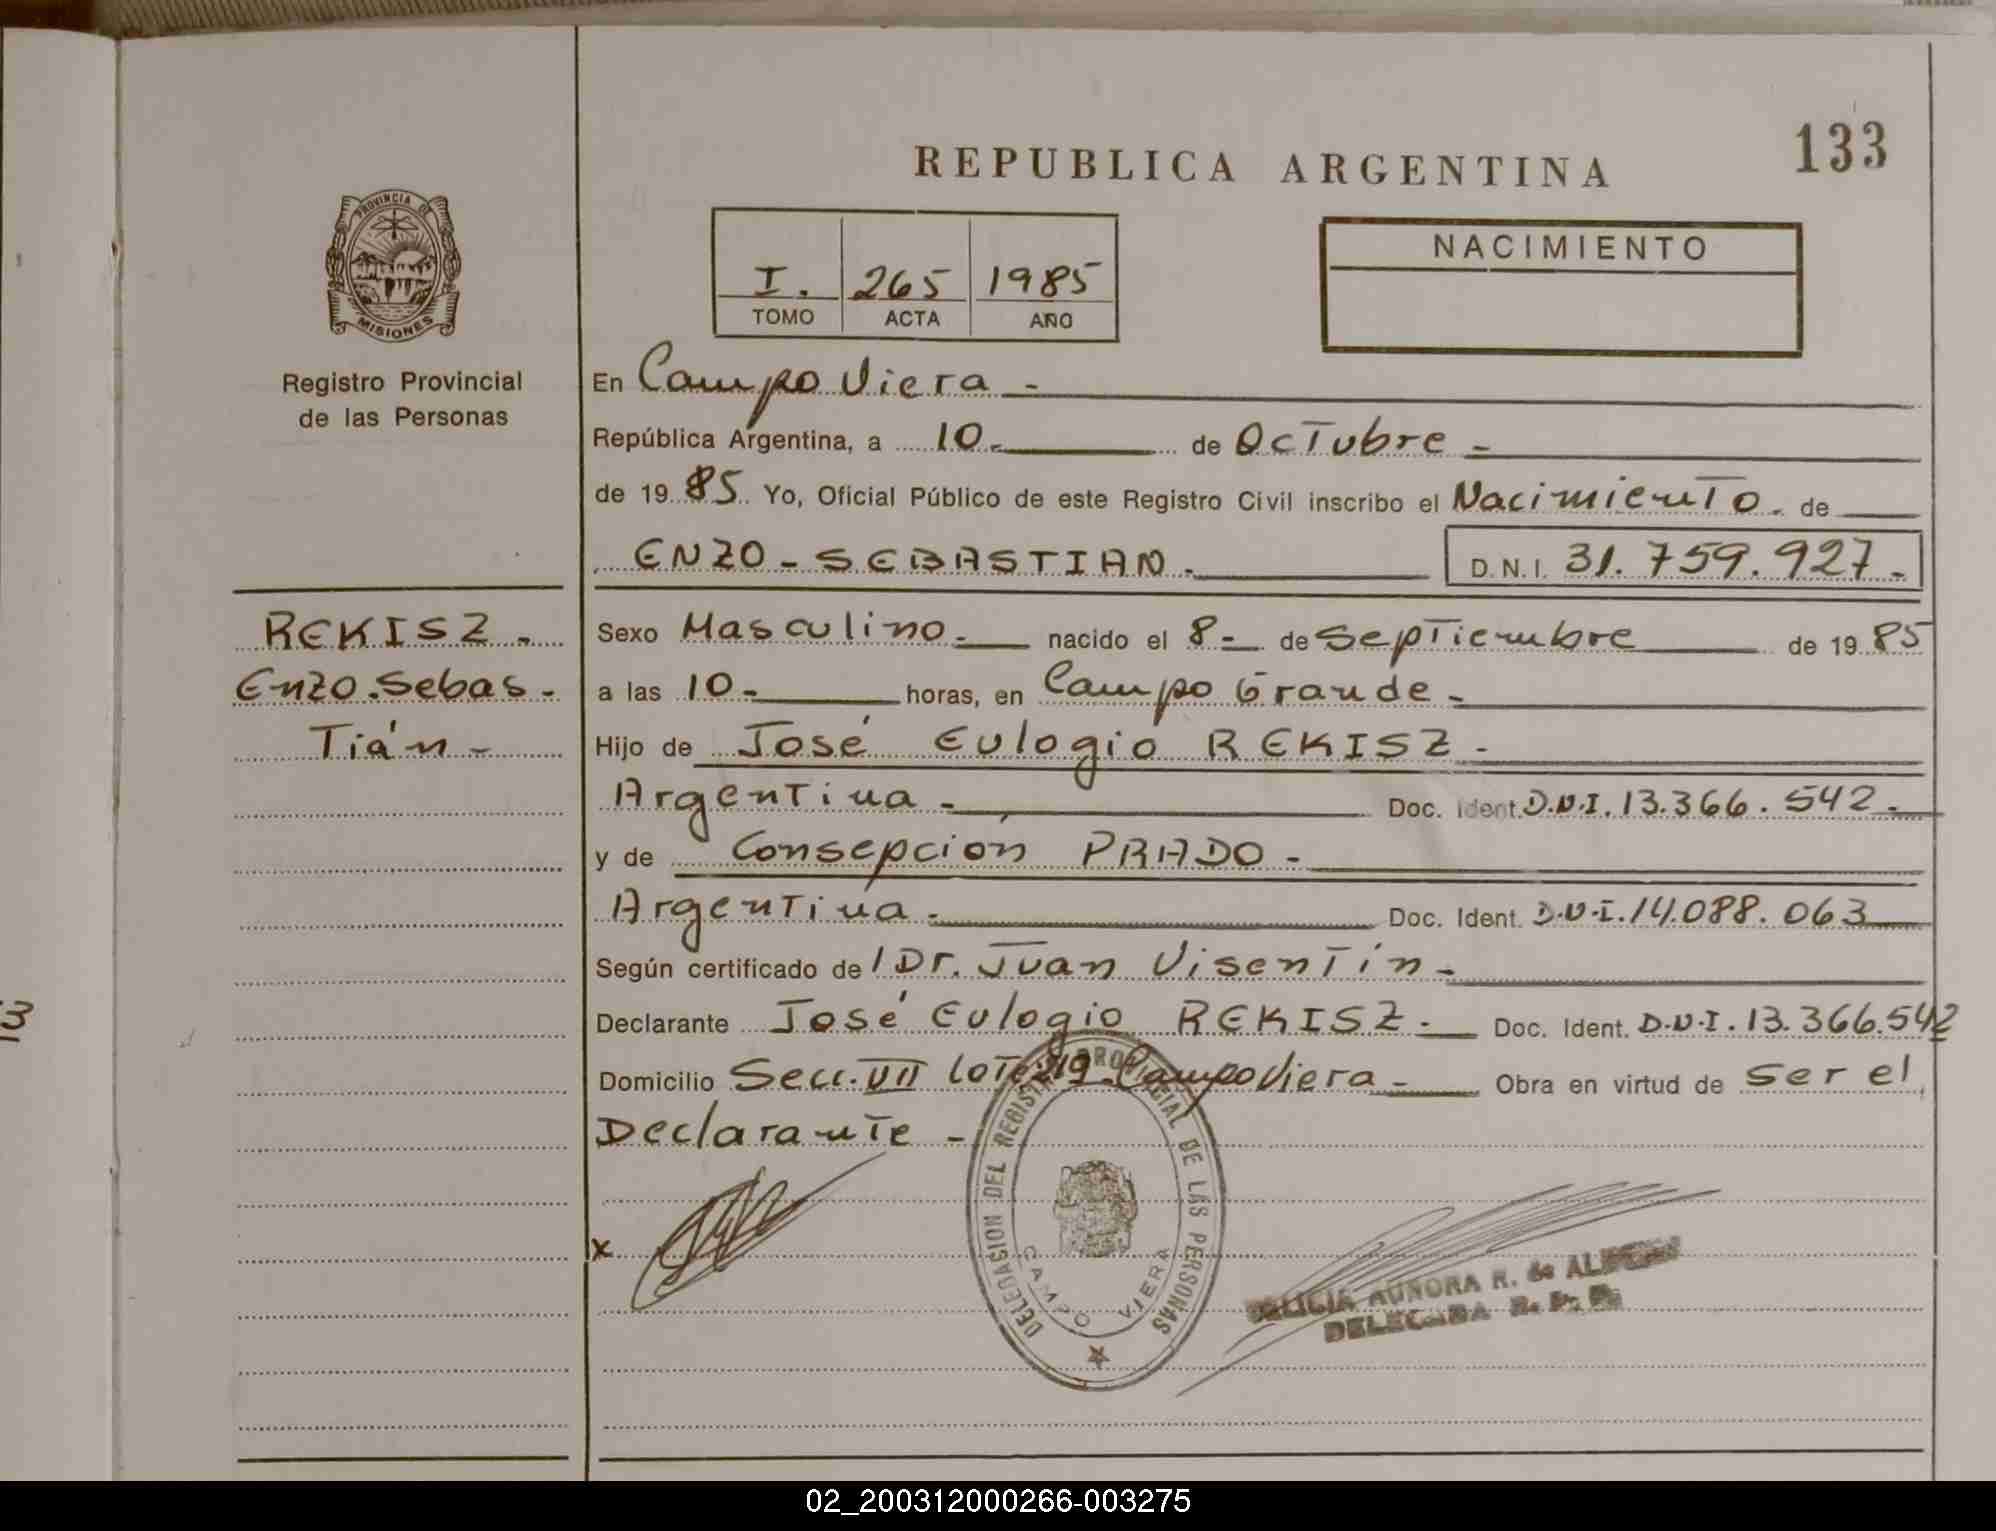 133
REPUBLICA ARGENTINA
PROVINCIA DE
MISIONES
Registro Provincial
de las Personas
I. 265 1985
TOMO ACTA AÑO
NACIMIENTO
En Campo Viera -
República Argentina, a 10.- de Octubre -
de 19 85. Yo, Oficial Público de este Registro Civil inscribo el Nacimiento. de
ENZO - SEBASTIAN - D.N.I. 31.759.927.-
REKISZ -
Enzo. Sebas -
Tián -
Sexo Masculino - nacido el 8 - de Septiembre de 19 85
a las 10 - horas, en Campo Grande -
Hijo de José Eulogio REKISZ -
Argentina - Doc. Ident. D.N.I. 13.366.542.-
y de Consepción PRADO -
Argentina - Doc. Ident. D.N.I. 14.088.063
Según certificado de / Dr. Juan Visentín -
Declarante José Eulogio REKISZ - Doc. Ident. D.N.I. 13.366.542
Domicilio Secc. VII Lote 219 - Campo Viera - Obra en virtud de ser el
Declarante -
x
DELEGACION DEL REGISTRO PROVINCIAL DE LAS PERSONAS
CAMPO VIERA
AURORA R. de
DELEGADA R. P. P.
3
02_200312000266-003275